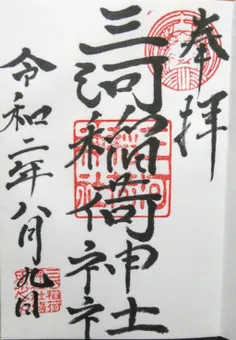 奉拝
三河稲荷神社
令和二年八月九日